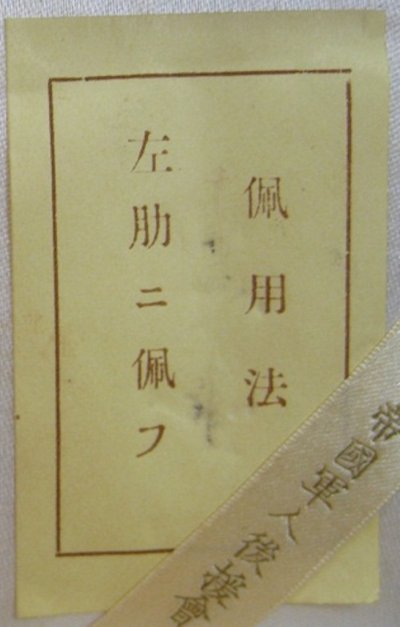 佩用法
左肋ニ佩フ
帝國軍人後援會